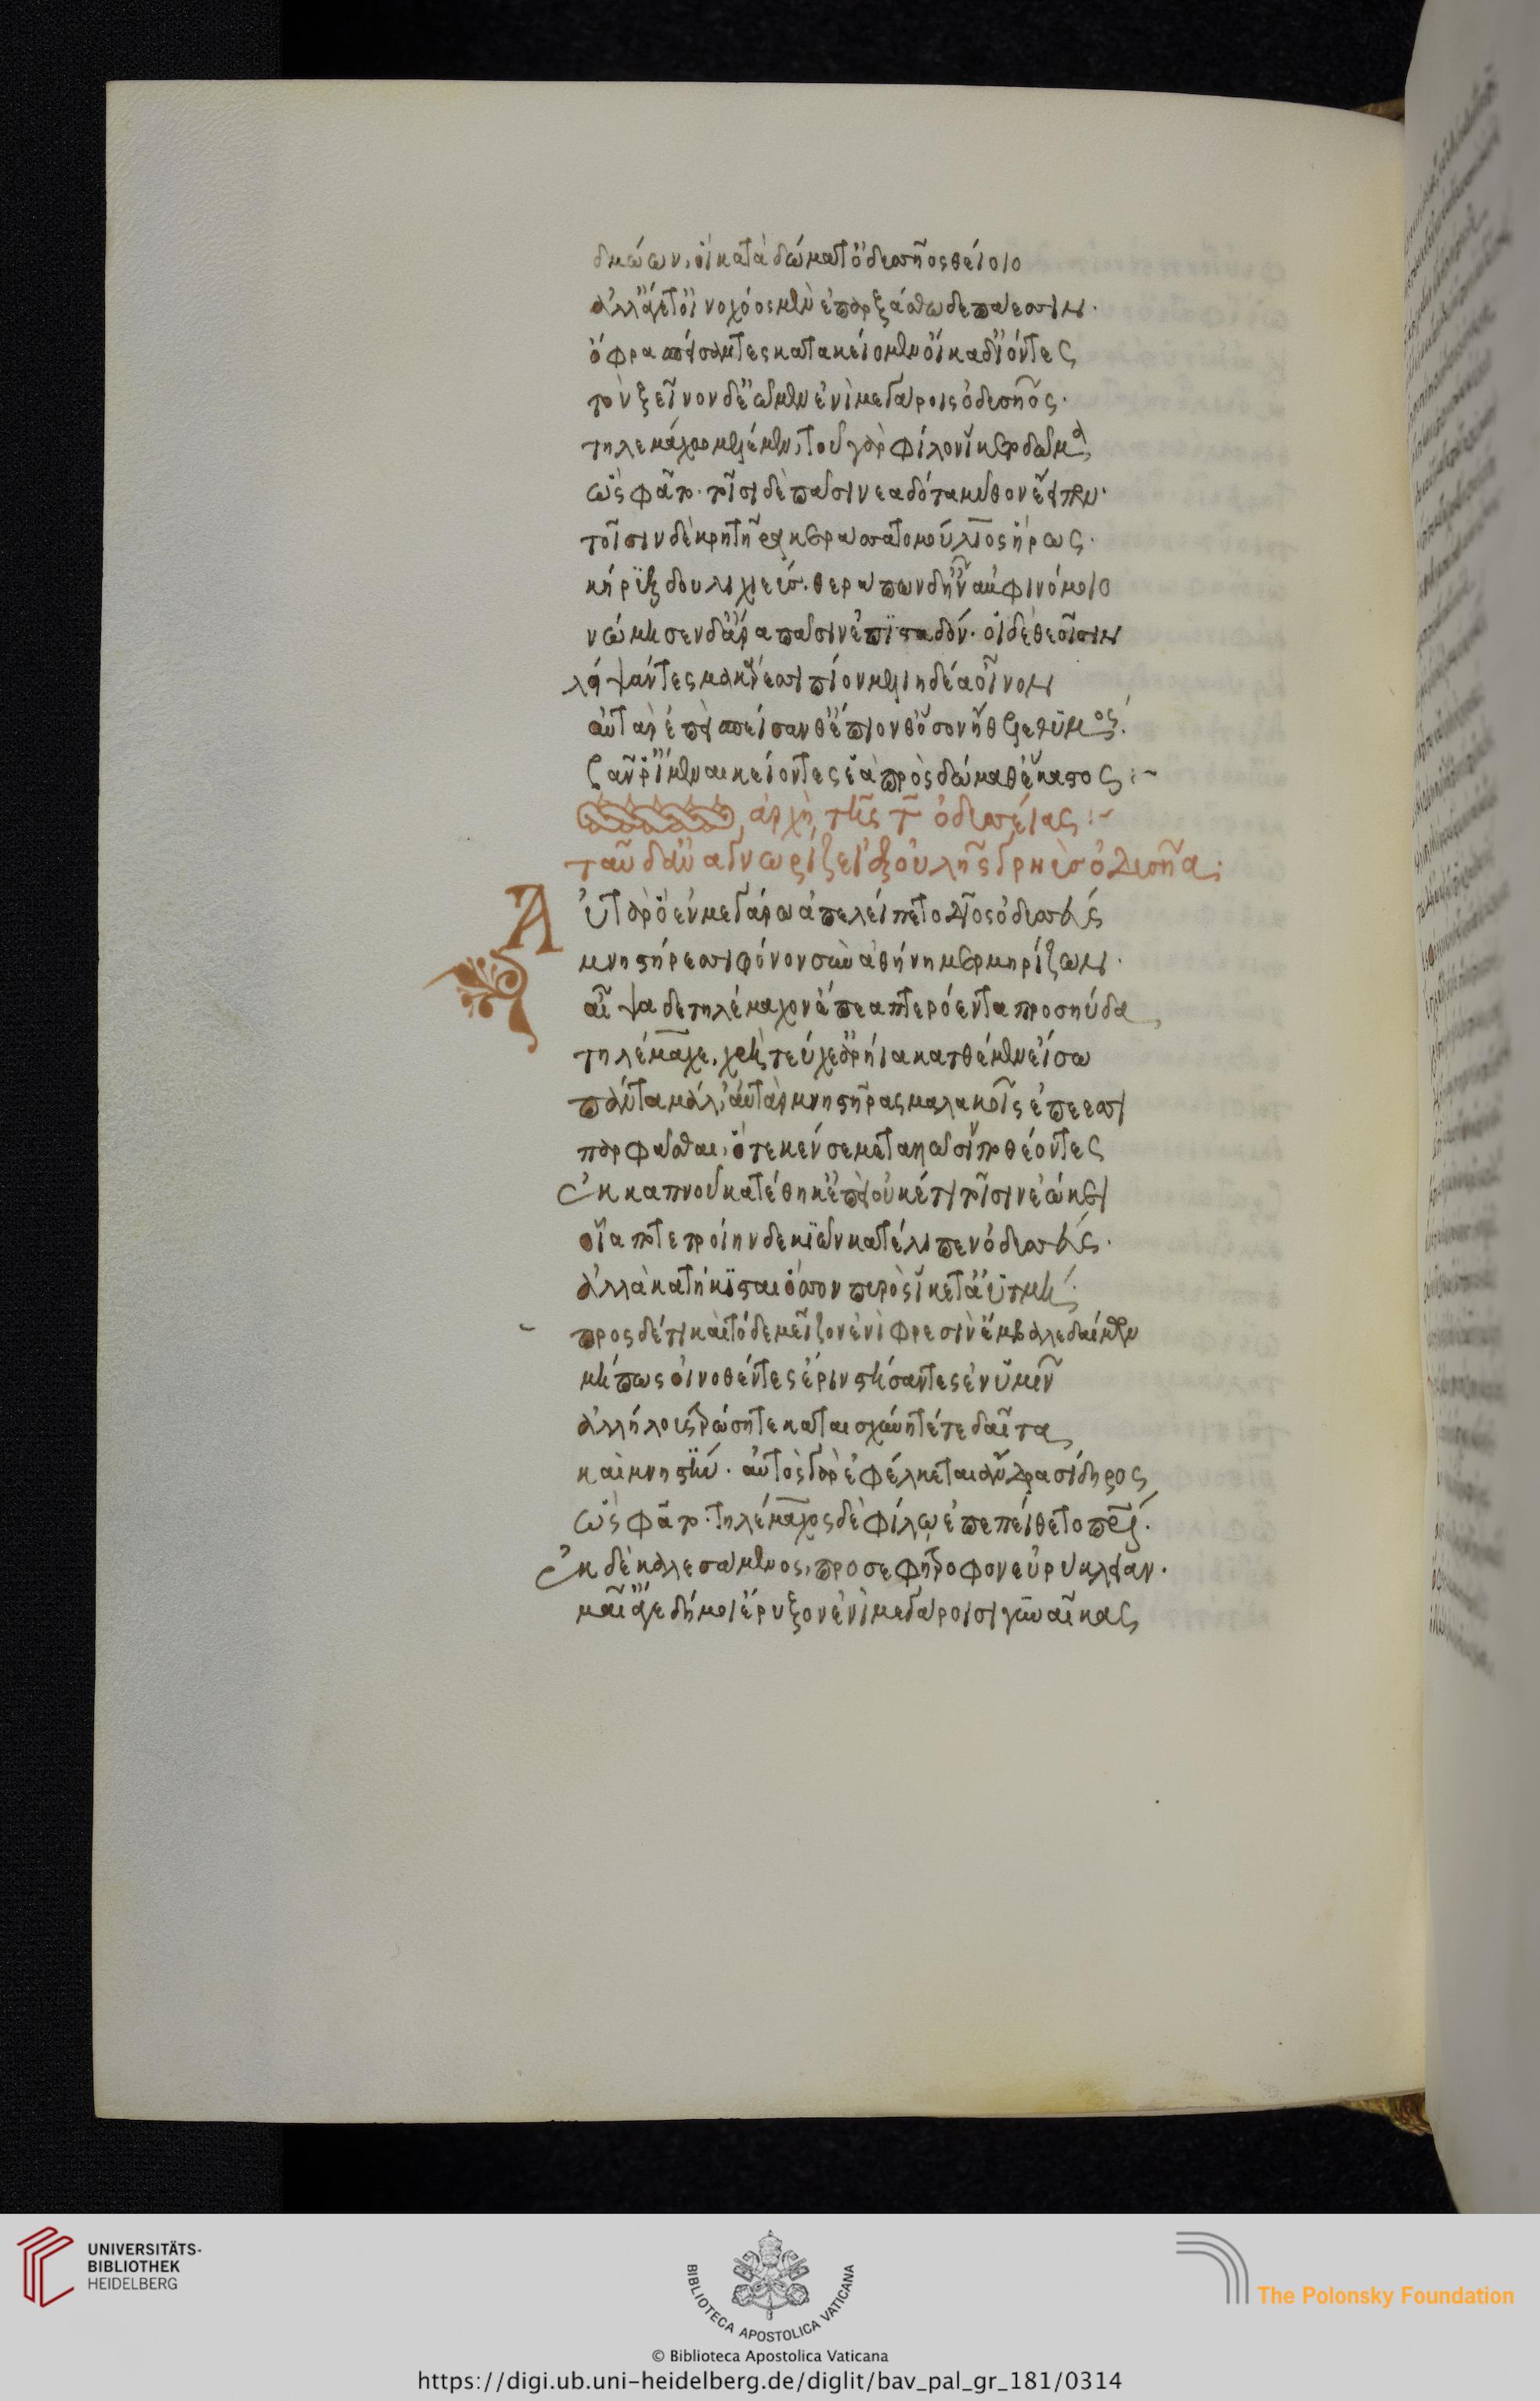 δμώων, οἳ κατὰ δώματ' ὀδυσσῆος θείοιο
ἀλλ' ἄγετ' οἰνοχόος μὲν ἐπαρξάσθω δεπάεσσιν·
ὄφρα σπείσαντες κατακείομεν οἴκαδ' ἰόντες
τὸν ξεῖνον δ' ἐῶμεν ἐνὶ μεγάροις ὀδυσσῆος·
τηλεμάχωι μελέμεν, τοῦ γὰρ φίλον ἵκετο δῶμα
ὣς φάτο· τοῖσι δὲ πᾶσιν ἑαδότα μῦθον ἔειπεν·
τοῖσιν δὲ κρητῆρα κεράσσατο μούλιος ἥρως·
κήρυξ δουλιχιεύς· θεράπων δ' ἦν ἀμφινόμοιο
νώμησεν δ' ἄρα πᾶσιν ἐπισταδόν· οἱ δὲ θεοῖσιν
λείψαντες μακάρεσσι πίον μελιηδέα οἶνον
αὐτὰρ ἐπεὶ σπεῖσάν θ' ἔπιον θ' ὅσον ἤθελε θυμός·
βάν ῥ' ἴμεναι κείοντες ἑὰ πρὸς δώμαθ' ἕκαστος :~
ἀρχὴ τῆς τ ὀδυσσείας :~
ταῦ δ' ἀναγνωρίζει ἐξ οὐλῆς γρηῢς ὀδυσσῆα :
Αὐτὰρ ὃ ἐν μεγάρω ἀπελείπετο δῖος ὀδυσσεύς
μνηστήρεσσι φόνον σὺν ἀθήνη μερμηρίζων·
αἶψα δὲ τηλέμαχον ἔπεα πτερόεντα προσηύδα
τηλέμαχε, χρὴ τεύχε' ἀρήϊα κατθέμεν εἴσω
πάντα μάλ', αὐτὰρ μνηστῆρας μαλακοῖς ἐπέεσσι
παρφάσθαι, ὅτε κέν σε μεταλλῶσιν ποθέοντες
ἐκ καπνοῦ κατέθηκ' ἐπεὶ οὐκέτι τοῖσιν ἐώκει
οἷά ποτε τροίηνδε κιὼν κατέλιπεν ὀδυσσεύς·
ἀλλὰ κατήκισται ὅσσον πυρὸς ἵκετ' ἀϋτμή·
πρὸς δ' ἔτι καὶ τόδε μεῖζον ἐνὶ φρεσὶν ἔμβαλε δαίμων
μή πως οἰνωθέντες ἔριν στήσαντες ἐν ὑμῖν
ἀλλήλους τρώσητε καταισχύνητέ τε δαῖτα
καὶ μνηστύν· αὐτὸς γὰρ ἐφέλκεται ἄνδρα σίδηρος
ὣς φάτο· τηλέμαχος δὲ φίλω ἐπεπείθετο πατρί·
ἐκ δὲ καλεσσάμενος, προσέφη τροφὸν εὐρύκλειαν·
μαῖ' ἄγε δή μοι ἔρυξον ἐνὶ μεγάροισι γυναῖκας
UNIVERSITÄTS-
BIBLIOTHEK
HEIDELBERG
BIBLIOTECA APOSTOLICA VATICANA
The Polonsky Foundation
© Biblioteca Apostolica Vaticana
https://digi.ub.uni-heidelberg.de/diglit/bav_pal_gr_181/0314